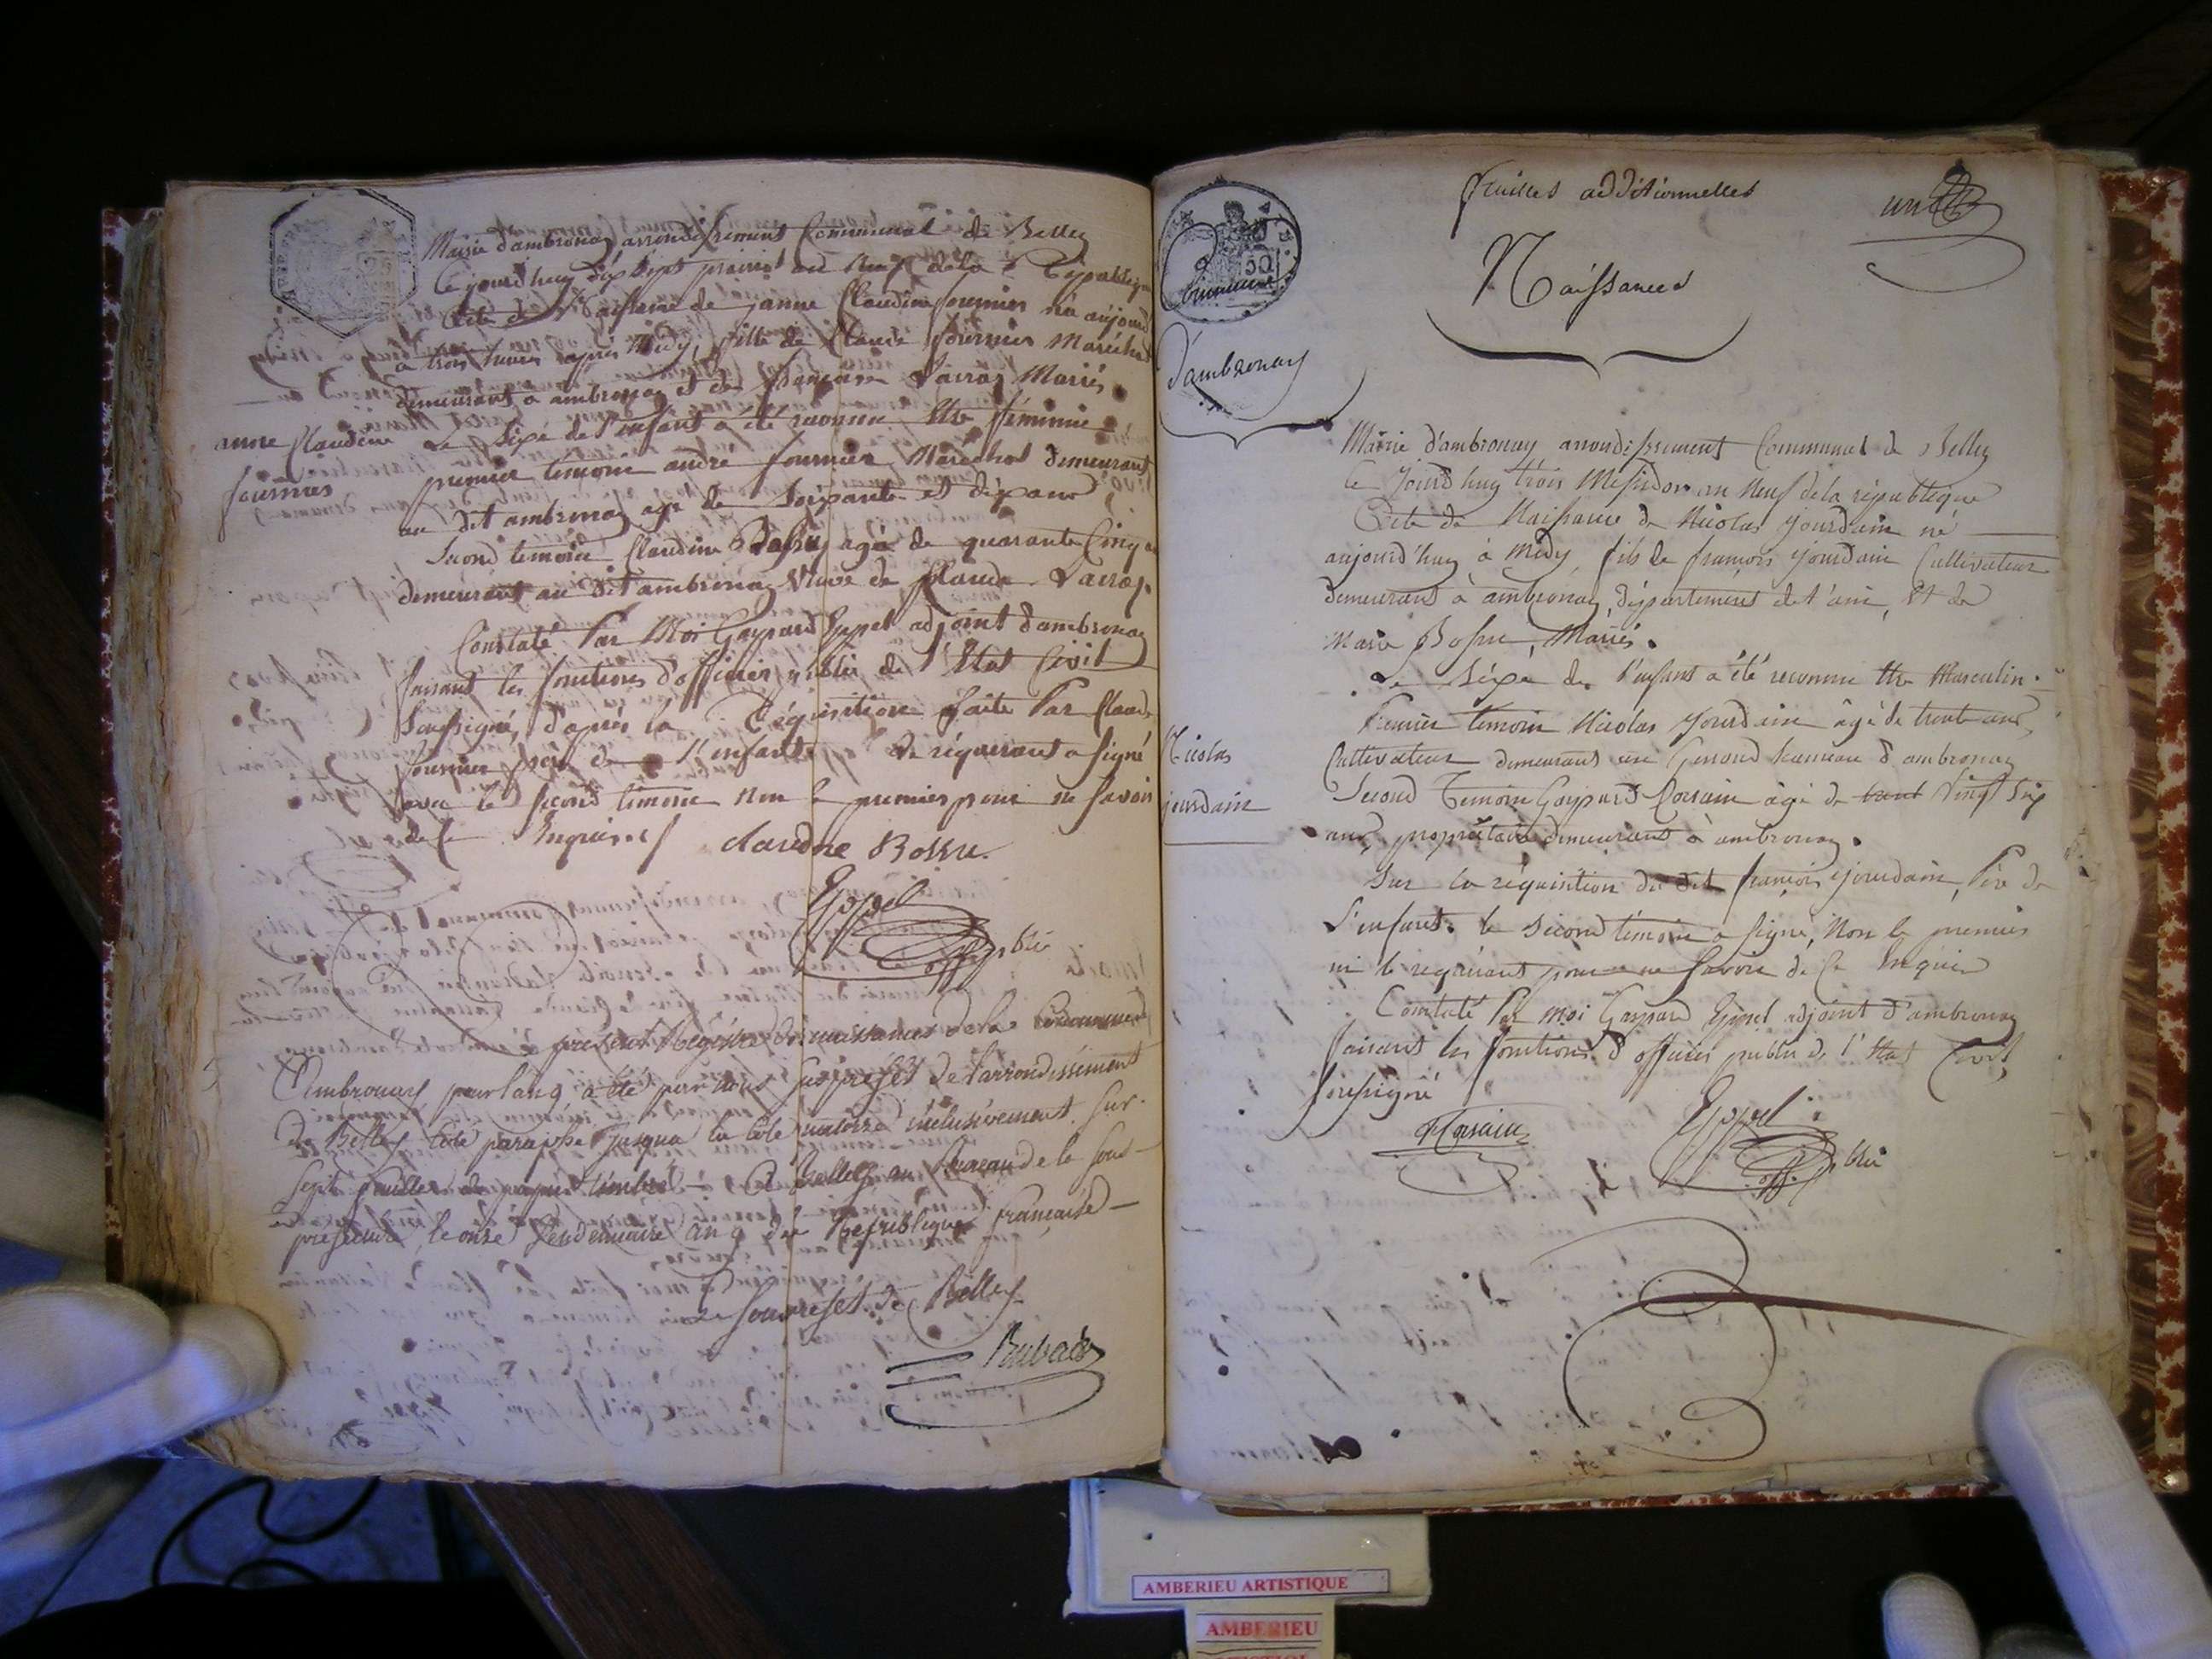 Mairie d'ambronay arrondissement Communal de Belley
Ce jourd'huy dix sept prairial an neuf de la République
Acte de Naissance de janne Claudine fournier née aujourd
à trois heures après Midy, fille de Claude fournier Maréchal
demeurant à ambronay et de françoise Mariés
Le sexe de l'enfant a été reconnu être féminin
anne Claudine
fournier
premier témoin andré fournier Maréchal demeurant
au dit ambronay agé de soixante et dix ans
Second temoin Claudine Bossu agée de quarante Cinq
demeurant au dit ambronay Veuve de Claude
Constaté Par Moi Gaspard Eppel adjoint d'ambronay
faisant les fonctions d'officier public de l'état Civil
Soussigné, d'après la Réquisition faite Par Claude
fournier père de l'enfant Le réquerant a signé
avec le second témoin non le premier pour ne savoir
de ce Inquis
claudine Bossu.
Eppel
off. p. blic
présent Régistre des naissances de la Commune
d'Ambronay pour l'an 9, a été par nous sousprefet de l'arrondissement
de Belley coté paraphé jusqu'a la cote inclusivement. sur
sept feuilles de papier timbré - A Belley au Bureau de la sous-
prefecture, le onze Vendemiaire an 9 de la Republique française -
Le sousprefet de Belley
feuilles additionnelles
un
Naissances
Commune
d'ambronay
Mairie d'ambronay arrondissement Communal de Belley
Ce Jourd'huy trois Messidor an Neuf de la république
Acte de Naissance de Nicolas jourdain né
aujourd'huy à Midy, fils de françois jourdain Cultivateur
demeurant à ambronay, département de l'ain, Et de
Marie Bossu, Mariés.
Le séxe de l'enfant a été reconnu être Masculin.
Premier temoin Nicolas jourdain âgé de trente ans,
Nicolas
jourdain
Cultivateur demeurant au Genoud hameau d'ambronay
Second Temoin Gaspard Corsain âgé de trent Vingt Six
ans, propriétaire demeurant à ambronay.
Sur la réquisition du dit françois jourdain, Père de
L'enfant. le second témoin a signé, Non le premier
ni le requérant pour ne savoir de Ce Inquis
Constaté Par moi Gaspard Eppel adjoint d'ambronay
faisant les fonctions d'officier public de l'état Civil,
soussigné
Corsain
Eppel
off. p. blic
AMBERIEU ARTISTIQUE
AMBERIEU